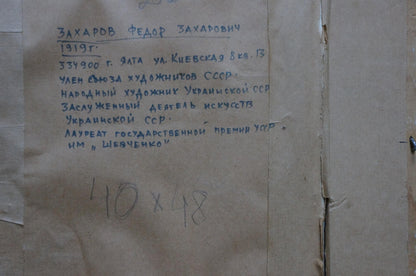 ЗАХАРОВ ФЕДОР ЗАХАРОВИЧ
1919г.
334900 г. ЯЛТА УЛ. КИЕВСКАЯ 8 КВ. 13
ЧЛЕН СОЮЗА ХУДОЖНИКОВ СССР.
НАРОДНЫЙ ХУДОЖНИК УКРАИНСКОЙ ССР
ЗАСЛУЖЕННЫЙ ДЕЯТЕЛЬ ИСКУССТВ
УКРАИНСКОЙ ССР.
ЛАУРЕАТ ГОСУДАРСТВЕННОЙ ПРЕМИИ УССР
ИМ „ШЕВЧЕНКО"
40 х 48